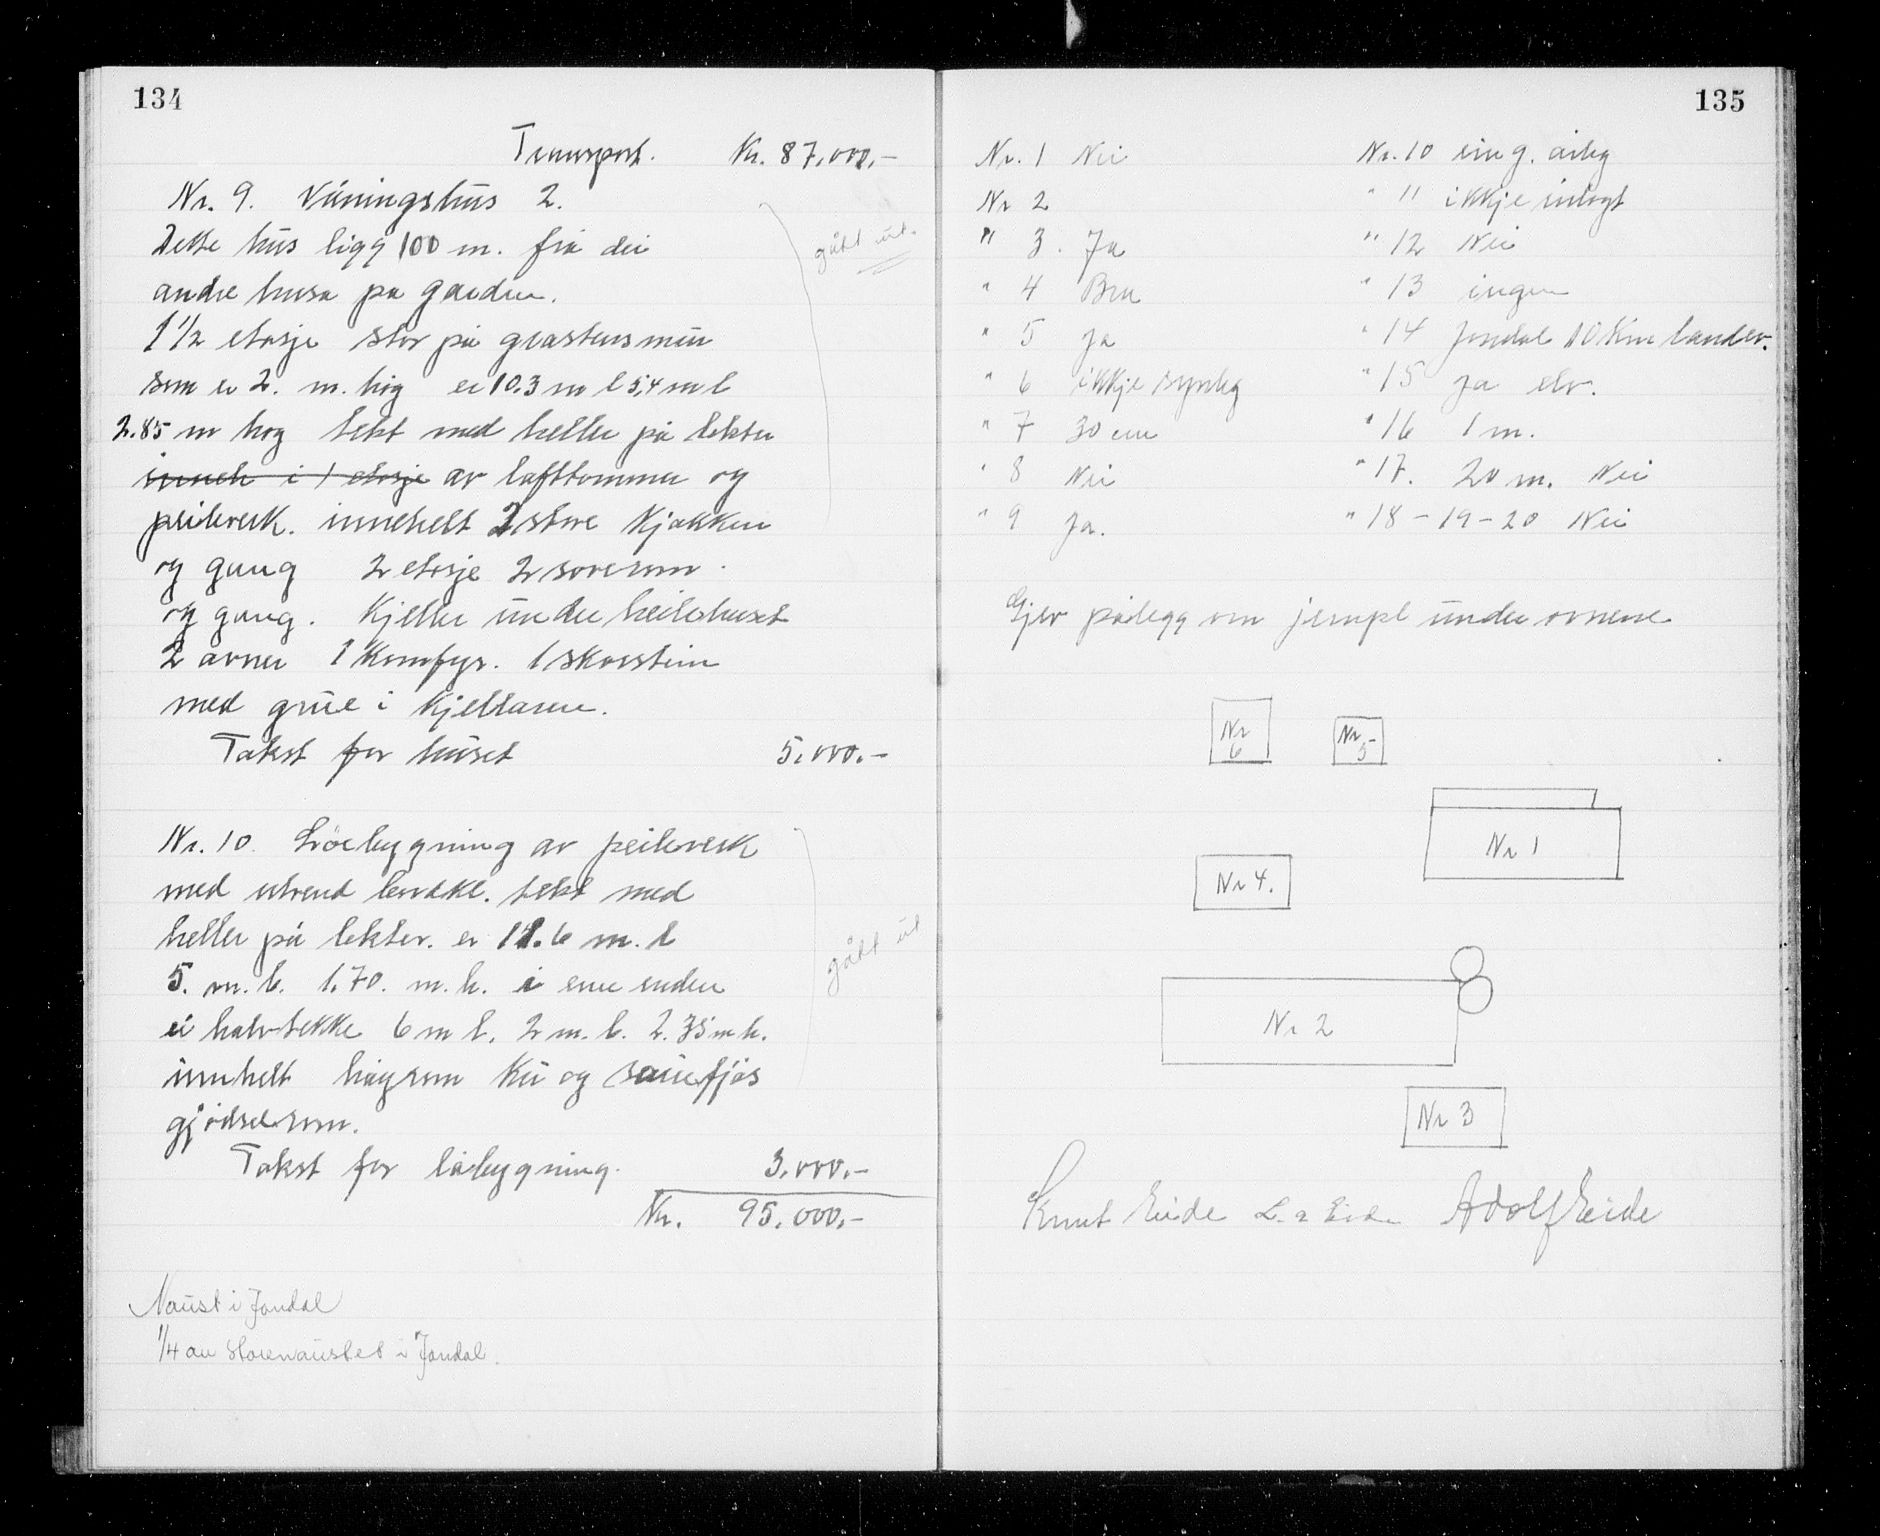 134
Transport. Kr. 87.000.-
Nr. 9. Våningshus 2.
Dette hus ligg 100 m. frå dei
andre husa på garden.
gått ut.
1 1/2 etasje stor på gråsteinsmur
som er 2. m. høg er 10.3 m l 5,4 m b
2.85 m høg tekt med heller på lekter
inneh i 1 etasje av lafttømmer og
peilverk. innehelt 2 store kjøkken
og gang 2 etasje 2 soverom.
og gang. Kjeller under heile huset
2 ovner 1 Komfyr. 1 skorstein
med grue i kjellaren.
Takst for huset 5.000.-
Nr. 10. Löebygning av peilverk
med utvend bordkl. tekt med
heller på lekter. er 11.6 m. l
5. m. b. 1.70. m. h. i ene enden
ei halvtekke 6 m l. 2 m. b. 2.35 m h.
gått ut
innhelt høyrom ku og sauefjøs
gjødselrom.
Takst for løbygning. 3.000.-
Kr. 95.000.-
Naust i Jondal
1/4 av Storenaustet i Jondal.
135
Nr. 1 Nei
Nr 2
" 3. Ja
" 4 Bra
" 5 ja
" 6 ikkje synleg
" 7 30 cm
" 8 Nei
" 9 Ja.
Nr. 10 ein g. årleg
" 11 ikkje inlagt
" 12 Nei
" 13 ingen
" 14 Jondal 10 Km landev.
" 15 ja elv.
" 16 1 m.
" 17. 20 m. Nei
" 18-19-20 Nei
Gjev pålegg om jernpl under ovnene
Nr 6
Nr 5
Nr 1
Nr 4.
Nr 2
Nr 3
Knut Eide L. a Eide Adolf Eide